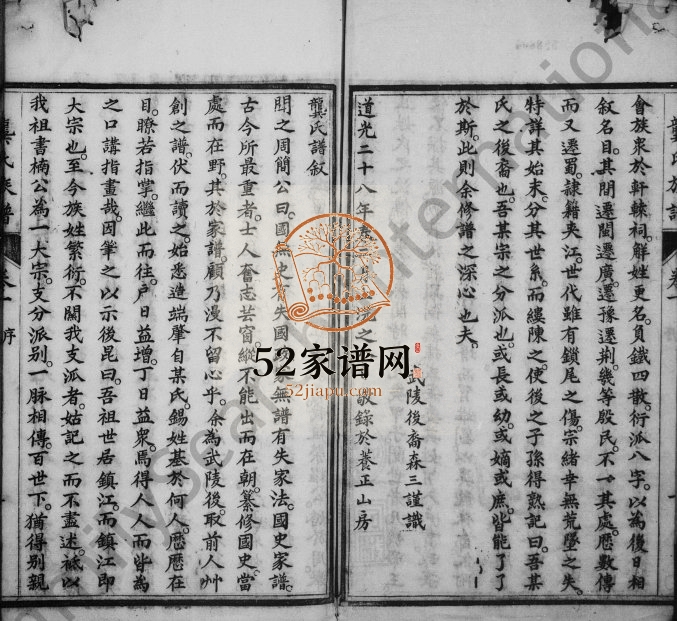 會族衆於軒轅祠鮮姓更名負鐵四散衍派八字以為後日相
叙名目其間遷閩遷廣遷豫遷荆幾等殷民不一其處歷數傳
而又遷蜀隸籍夾江世代雖有鎖尾之傷宗緒幸無荒墜之失
特詳其始末分其世系而縷陳之使後之子孫得熟記曰吾某
氏之後裔也吾某宗之分派也或長或幼或嫡或庶皆能了了
於斯此則余修譜之深心也夫
武陵後裔森三謹識
道光二十八年
之
敬錄於養正山房
龔氏族譜
卷一
序
龔氏譜叙
聞之周簡公曰國無史有失國
無譜有失家法國史家譜
古今所最重者士人奮志芸窗縱不能出而在朝纂修國史當
處而在野其於家譜顧乃漫不留心乎余為武陵後取前人艸
創之譜伏而讀之始悉造端肇自某氏錫姓基於何人歷歷在
目瞭若指掌繼此而往户日益增丁日益衆焉得人人而皆為
之口講指畫哉因筆之以示後昆曰吾祖世居鎮江而鎮江即
大宗也至今族姓繁衍不關我支派者姑記之而不盡述祗以
我祖書楠公為一大宗支分派別一脈相傳百世下猶得別親
龔氏族譜
卷一
序
52家谱网
52jiapu.com
FamilySearch International